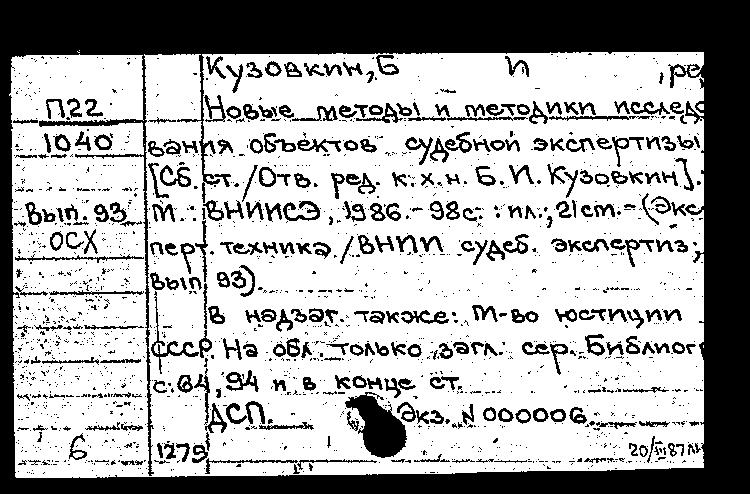 Кузовкин, Б И , ред
П22 Новые методы и методики исследо
1040 вания объектов судебной экспертизы
[Сб. ст. / Отв. ред. к.х.н. Б. И. Кузовкин].
Вып. 93 М. : ВНИИСЭ, 1986. - 98с. : ил.; 21 см. - (Экс
ОСХ перт. техника / ВНИИ судеб. экспертиз;
вып. 93).
В надзаг. также: М-во юстиции
СССР. На обл. только загл. сер. Библиогр
с. 64, 94 и в конце ст.
ДСП. Экз. N 000006
6 1279 20/III 87